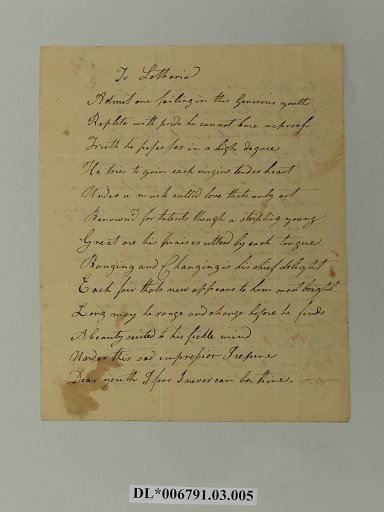 To Lothario
Admit one failing in this Generous youth
Replete with pride he cannot bare reproof
Truth he posesses in a high degree
He tries to gain each virgins tender heart
Under a mask calld love thats only art
Renownd for talents though a stripling young
Great are his praises utterd by each tongue
Ranging and Changing is his chief delight
Each fair thats new appears to him most bright
Long may he range and change before he finds
A beauty suited to his fickle mind
Under this sad impression I repine
Dear youth I fear I never can be thine.
DL*006791.03.005